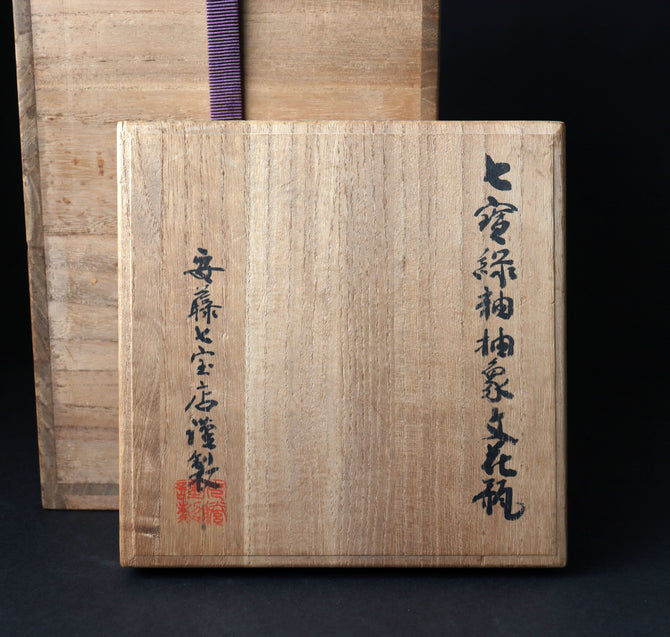 七寳緑釉抽象文花瓶
安藤七宝店謹製